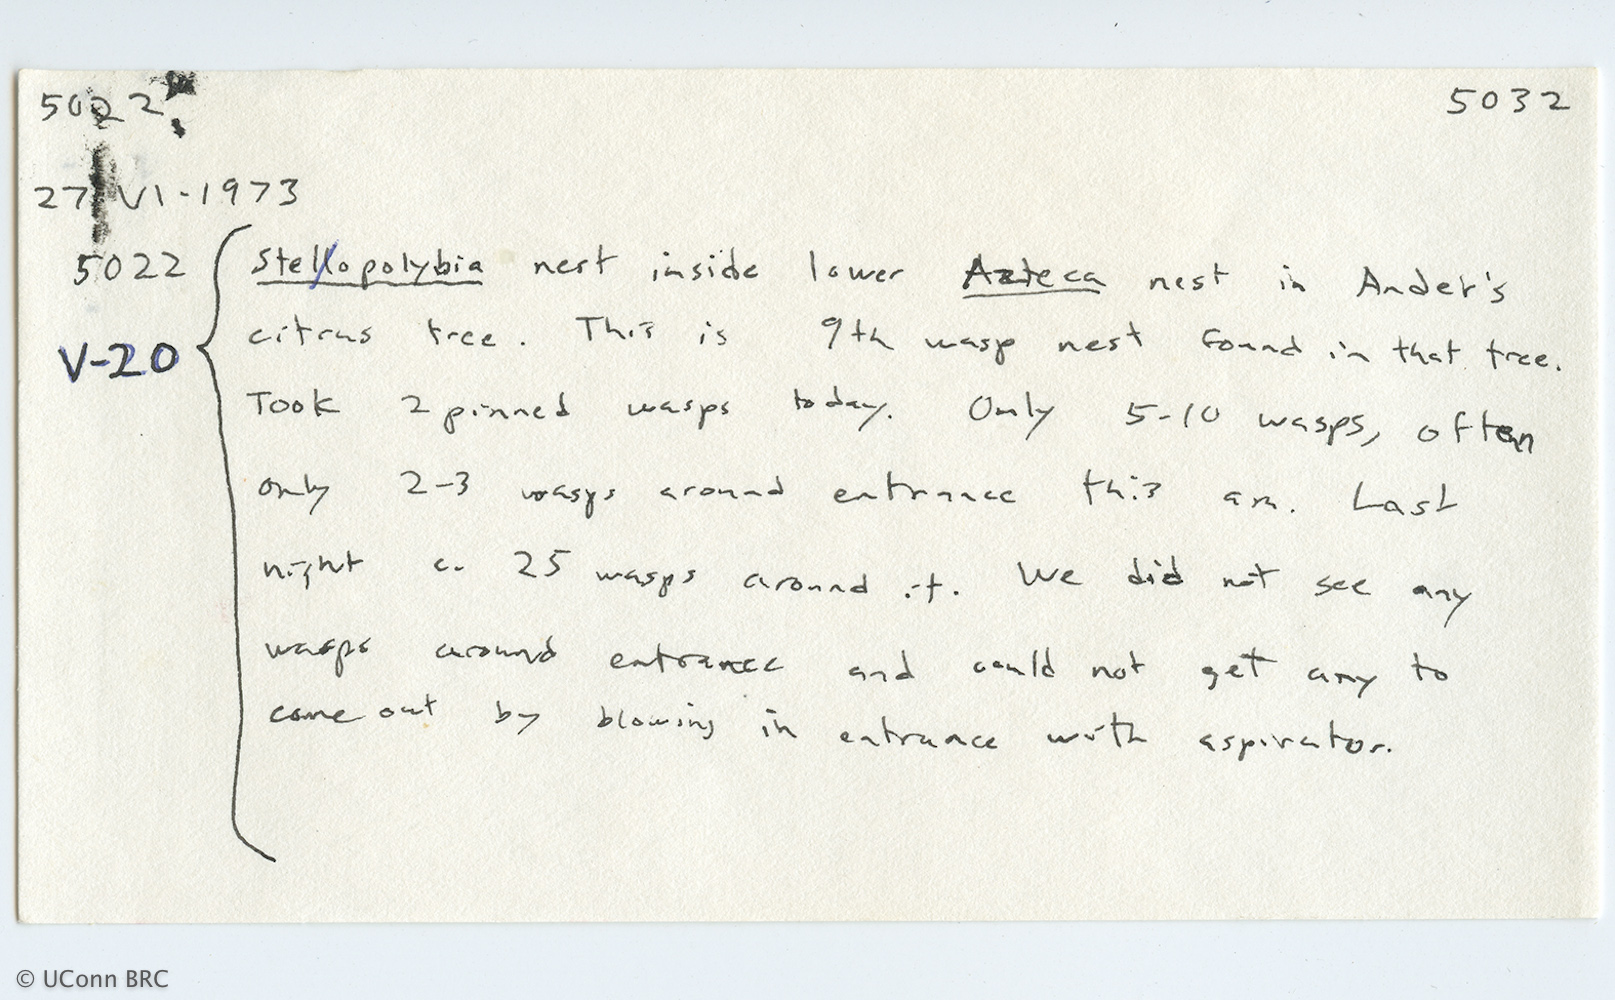 5022 5032
27-VI-1973
5022 Stelopolybia nest inside lower Azteca nest in Ander's
V-20 citrus tree. This is 9th wasp nest found in that tree.
Took 2 pinned wasps today. Only 5-10 wasps, often
only 2-3 wasps around entrance this am. Last
night c. 25 wasps around it. We did not see any
wasps around entrance and could not get any to
come out by blowing in entrance with aspirator.
© UConn BRC